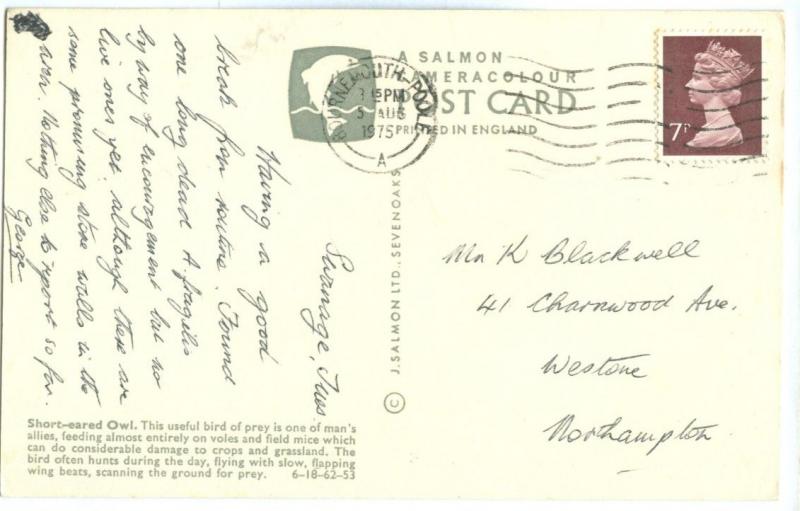 A SALMON
CAMERACOLOUR
POST CARD
PRINTED IN ENGLAND
BOURNEMOUTH-POOLE
3 15PM
5 AUG
1975
A
7P
Swanage, Tues
Having a good
break from routine. Found
one long dead A. fragilis
by way of encouragement but no
live ones yet. although there are
some promising stone walls in the
town. Nothing else to report so far.
George
© J. SALMON LTD., SEVENOAKS
Mr K Blackwell
41 Charnwood Ave.
Westone
Northampton
Short-eared Owl. This useful bird of prey is one of man's
allies, feeding almost entirely on voles and field mice which
can do considerable damage to crops and grassland. The
bird often hunts during the day, flying with slow, flapping
wing beats, scanning the ground for prey. 6-18-62-53